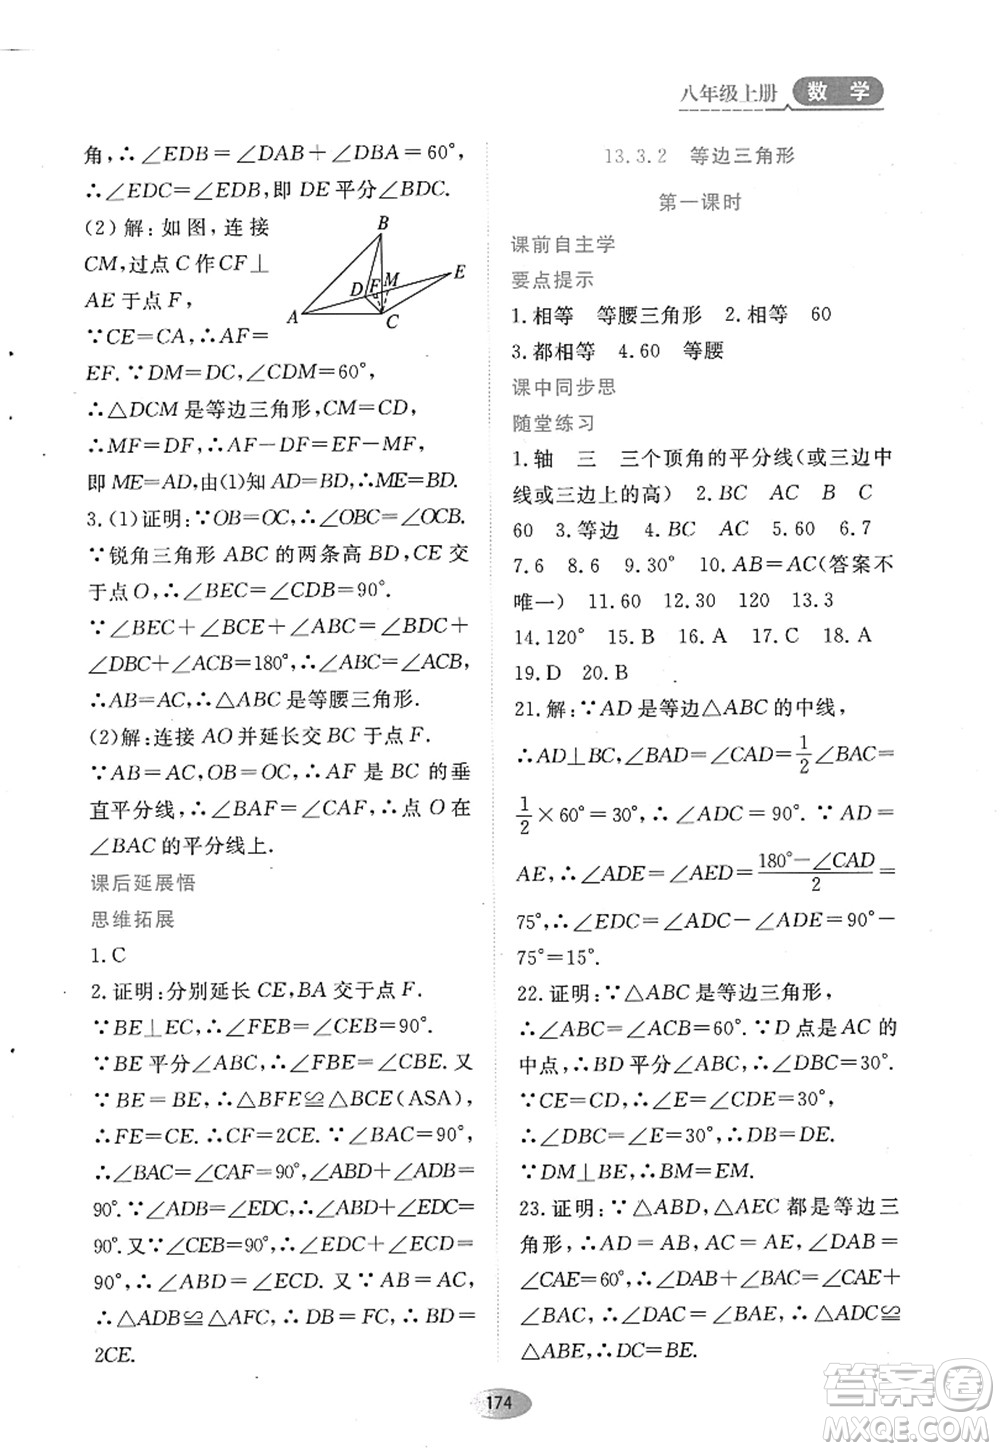 八年级上册 数 学
角,∴∠EDB=∠DAB+∠DBA=60°,
∴∠EDC=∠EDB,即 DE平分∠BDC.
(2)解:如图,连接
CM,过点 C 作 CF⊥
AE于点 F,
∵CE=CA,∴AF=
EF.∵DM=DC,∠CDM=60°,
∴△DCM 是等边三角形,CM=CD,
∴MF=DF,∴AF-DF=EF-MF,
即ME=AD,由(1)知AD=BD,∴ME=BD.
B
E
D
F
M
A
C
3.(1)证明:∵OB=OC,∴∠OBC=∠OCB.
∵锐角三角形 ABC 的两条高 BD,CE 交
于点O,∴∠BEC=∠CDB=90°.
∵∠BEC+∠BCE+∠ABC=∠BDC+
∠DBC+∠ACB=180°,∴∠ABC=∠ACB,
∴AB=AC,∴△ABC是等腰三角形.
(2)解:连接 AO并延长交 BC 于点 F.
∵AB=AC,OB=OC,∴AF 是 BC 的垂
直平分线,∴∠BAF=∠CAF,∴点 O 在
∠BAC的平分线上.
课后延展悟
思维拓展
1.C
2.证明:分别延长 CE,BA 交于点 F.
∵BE⊥EC,∴∠FEB=∠CEB=90°.
∵BE平分∠ABC,∴∠FBE=∠CBE.又
∵BE=BE,∴△BFE≌△BCE(ASA),
∴FE=CE.∴CF=2CE.∵∠BAC=90°,
∴∠BAC=∠CAF=90°,∠ABD+∠ADB=
90°.∵∠ADB=∠EDC,∴∠ABD+∠EDC=
90°.又∵∠CEB=90°,∴∠EDC+∠ECD=
90°,∴∠ABD=∠ECD.又∵AB=AC,
∴△ADB≌△AFC,∴DB=FC,∴DB=
2CE.
13.3.2 等边三角形
第一课时
课前自主学
要点提示
1.相等 等腰三角形 2.相等 60
3.都相等 4.60 等腰
课中同步思
随堂练习
1.轴 三 三个顶角的平分线(或三边中
线或三边上的高) 2.BC AC B C
60 3.等边 4.BC AC 5.60 6.7
7.6 8.6 9.30° 10.AB=AC(答案不
唯一) 11.60 12.30 120 13.3
14.120° 15.B 16.A 17.C 18.A
19.D 20.B
21.解:∵AD是等边△ABC的中线,
∴AD⊥BC,∠BAD=∠CAD=1/2∠BAC=
1/2×60°=30°,∴∠ADC=90°.∵AD=
AE,∴∠ADE=∠AED=(180°-∠CAD)/2=
75°,∴∠EDC=∠ADC-∠ADE=90°-
75°=15°.
22.证明:∵△ABC是等边三角形,
∴∠ABC=∠ACB=60°.∵D点是AC的
中点,∴BD平分∠ABC,∴∠DBC=30°.
∵CE=CD,∴∠E=∠CDE=30°,
∴∠DBC=∠E=30°,∴DB=DE.
∵DM⊥BE,∴BM=EM.
23.证明:∵△ABD,△AEC都是等边三
角形,∴AD=AB,AC=AE,∠DAB=
∠CAE=60°,∴∠DAB+∠BAC=∠CAE+
∠BAC,∴∠DAC=∠BAE,∴△DAC≌
△ABE,∴DC=BE.
174
答案圈
MXQE.COM